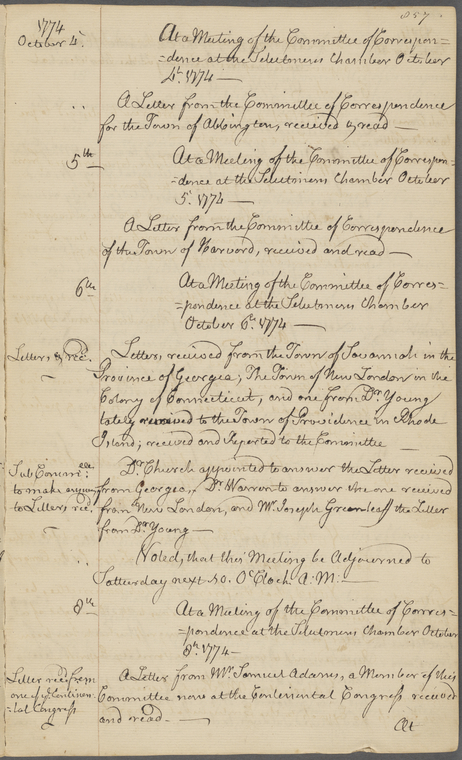 857.
1774
October 4.
At a Meeting of the Committee of Correspon=
=dence at the Selectmens Chamber October
4th. 1774 —
A Letter from the Committee of Correspondence
for the Town of Abbington, received & read —
5th
At a Meeting of the Committee of Correspon=
=dence at the Selectmens Chamber October
5. 1774 —
A Letter from the Committee of Correspondence
of the Town of Harvard, received and read —
6th
At a Meeting of the Committee of Corres=
=pondence at the Selectmens Chamber
October 6th. 1774 —
Letters, &c. rec'd.
Letters, received from the Town of Savannah in the
Province of Georgea; The Town of New London in the
Colony of Connecticut, and one from Dr. Young
lately removed to the Town of Providence in Rhode
Island; received and Reported to the Committee —
Sub Committee
to make answer
to Letters, rec'd.
Dr. Church appointed to answer the Letter received
from Georgea, Dr. Warren to answer the one received
from New London, and Mr. Joseph Greenleaff the Letter
from Dr. Young —
Voted, that this Meeting be Adjourned to
Satturday next 10. O'Clock A: M: —
8th
At a Meeting of the Committee of Corres=
=pondence at the Selectmens Chamber October
8th. 1774 —
Letter rec'd from
one of ye Continen=
=tal Congress
A Letter from Mr. Samuel Adams, a Member of this
Committee now at the Continental Congress received
and read. —
At